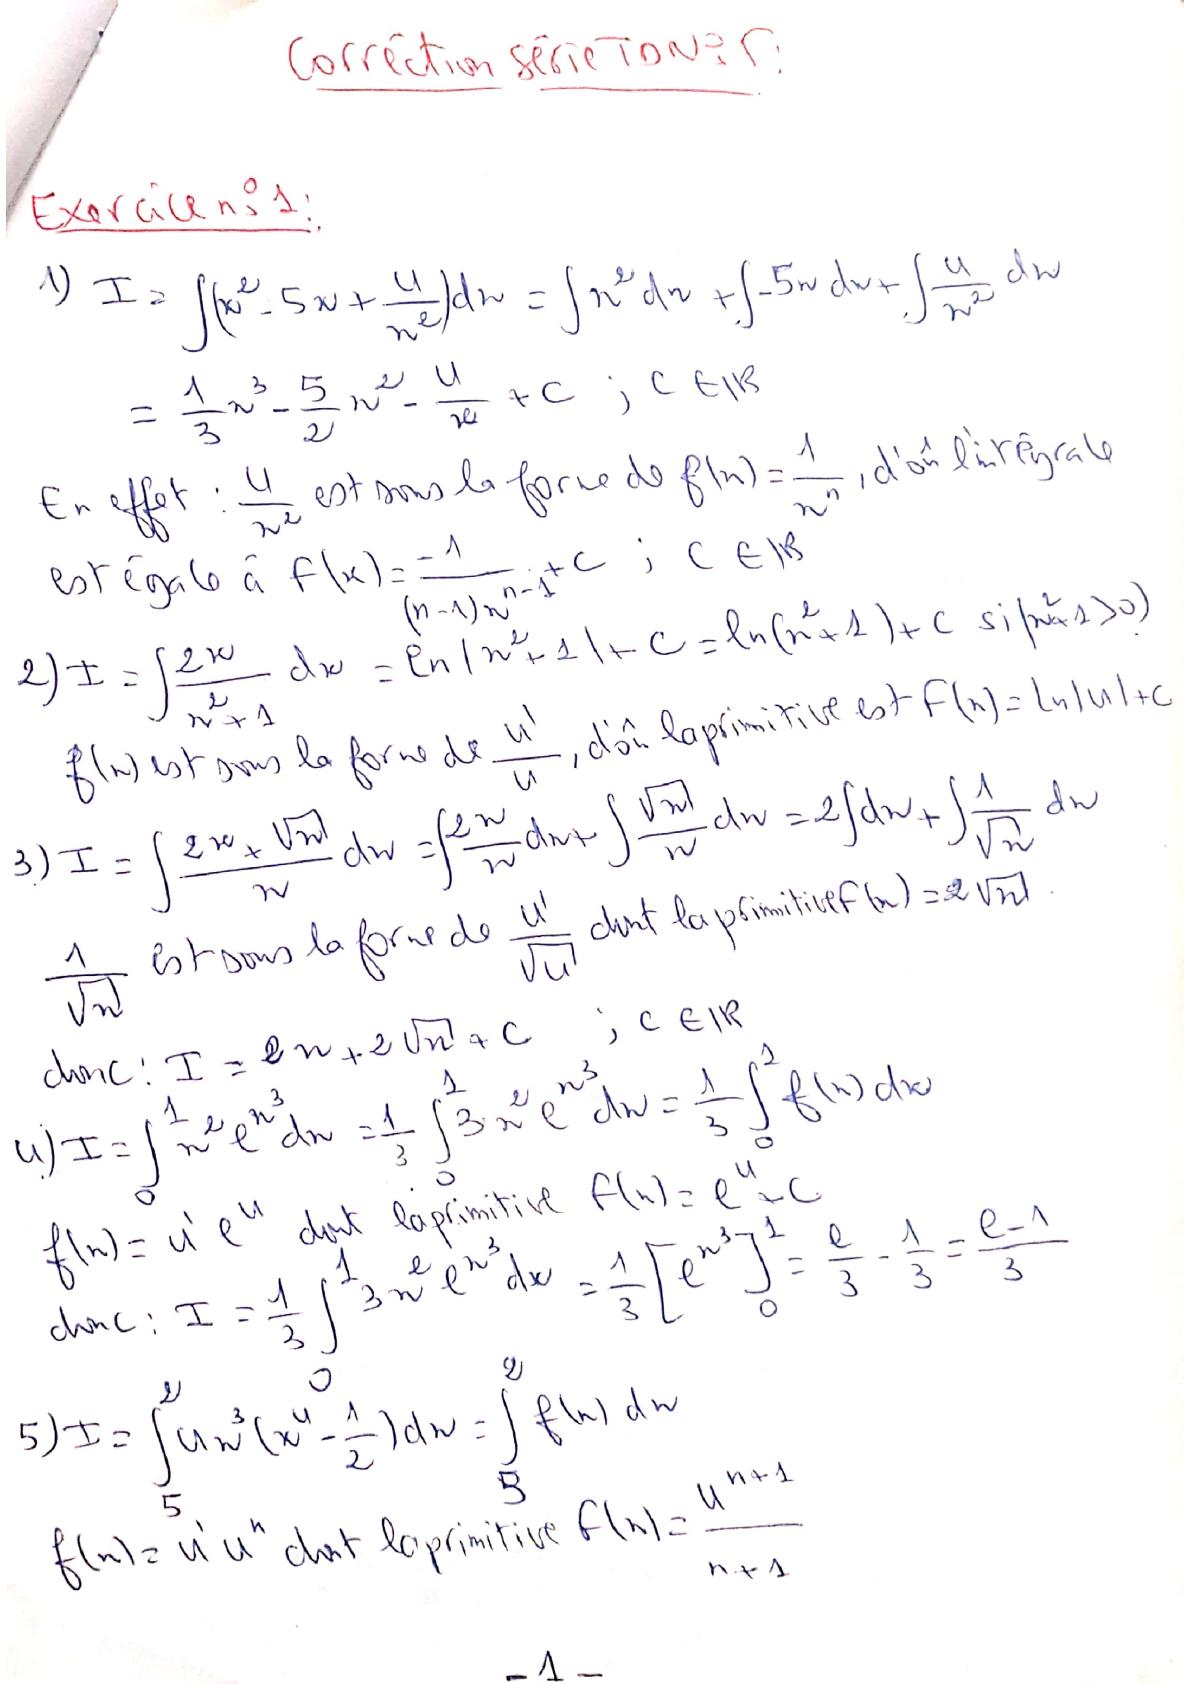 Corréction série TD N° 5:
Exercice n° 1:
1) I = ∫(x² - 5x + 4/x²)dx = ∫x² dx + ∫-5x dx + ∫4/x² dx
= 1/3 x³ - 5/2 x² - 4/x + C ; C ∈ IR
En effet : 4/x² est sous la forme de f(x) = 1/xⁿ, d'où l'intégrale
est égale à F(x) = -1/((n-1)xⁿ⁻¹) + C ; C ∈ IR
2) I = ∫ 2x/(x²+1) dx = ln|x²+1| + C = ln(x²+1) + C si (x²+1>0)
f(x) est sous la forme de u'/u, d'où la primitive est F(x) = ln|u| + C
3) I = ∫ (2x+√x)/x dx = ∫ 2x/x dx + ∫ √x/x dx = 2∫dx + ∫ 1/√x dx
1/√x est sous la forme de u'/√u dont la primitive F(x) = 2√x.
donc : I = 2x + 2√x + C ; C ∈ IR
4) I = ∫₀¹ x² e^(x³) dx = 1/3 ∫₀¹ 3x² e^(x³) dx = 1/3 ∫₀¹ f(x) dx
f(x) = u' e^u dont la primitive F(x) = e^u + C
donc : I = 1/3 ∫₀¹ 3x² e^(x³) dx = 1/3 [e^(x³)]₀¹ = e/3 - 1/3 = (e-1)/3
5) I = ∫₅² 4x³(x⁴ - 1/2)dx = ∫₅² f(x) dx
f(x) = u' uⁿ dont la primitive F(x) = uⁿ⁺¹/(n+1)
- 1 -